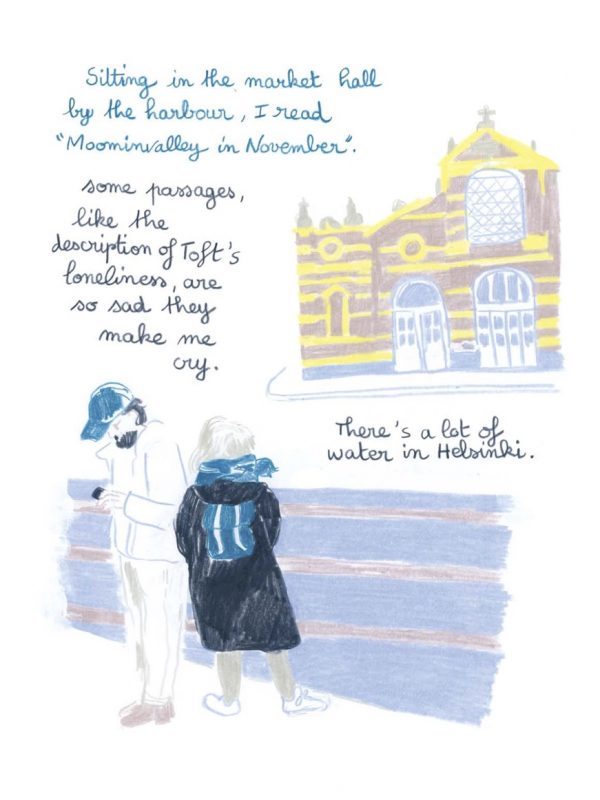 Sitting in the market hall
by the harbour, I read
"Moominvalley in November".
some passages,
like the
description of Toft's
loneliness, are
so sad they
make me
cry.
There's a lot of
water in Helsinki.